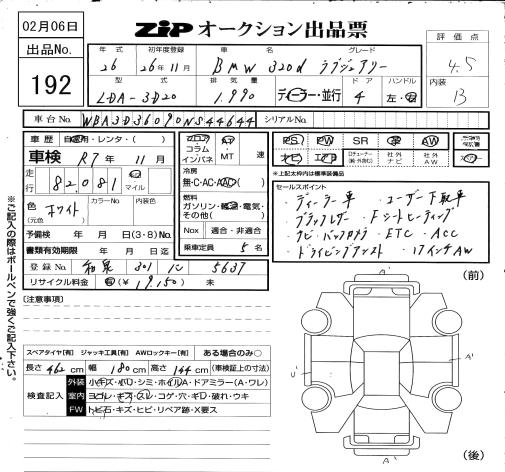 02月06日
ZIP オークション出品票
出品No.
192
年式 初年度登録 車名 グレード
26 26年11月 BMW 320d ラグジュアリー
型式 排気量 ドア ハンドル
LDA-3D20 1,990 ディーラー・並行 4 左・右
評価点
4.5
内装
B
車台No. WBA3D36090NS44644 シリアルNo.
車歴 自家用・レンタ・( )
車検 R7年 11月
走行 82,081 km マイル
色 (元色) ホワイト カラーNo. 内装色
予備検 年 月 日(3・8) No.
書類有効期限 年 月 日迄
登録No. 和泉 301 に 5637
リサイクル料金 有(¥ 19,150) 未
フロア AT
コラム
インパネ MT 速
冷房
無・C・AC・AAC( )
燃料
ガソリン・軽油・電気・
その他( )
Nox 適合・非適合
乗車定員 5名
PS PW SR 革 AW
ナビ エアB 社外ナビ 社外AW
*上記太枠内は標準装備品
セールスポイント
・ディーラー車 ・ユーザー下取車
・ブラックレザー ・Fシートヒーティング
・ナビ・バックカメラ ・ETC ・ACC
・ドライビングアシスト ・17インチAW
[注意事項]
※ご記入の際はボールペンで強くご記入下さい。
(前)
A'
U'
A'
A'
(後)
スペアタイヤ[有] ジャッキ工具[有] AWロックキー[有] ある場合のみ○
長さ 462 cm 幅 180 cm 高さ 144 cm (車検証上の寸法)
検査記入
外装 小キズ・小U・シミ・ホイルA・ドアミラー(A・ワレ)
室内 ヨゴレ・キズ・スレ・コゲ・穴・キD・破れ・ウキ
FW トビ石・キズ・ヒビ・リペア跡・X要ス